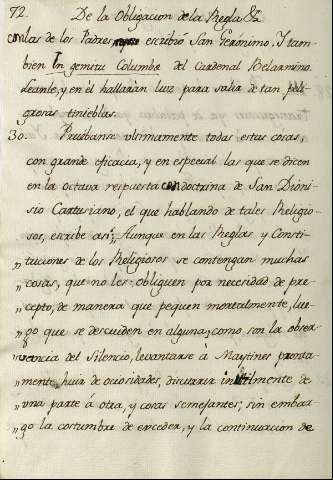 72. De la Obligacion de la Regla &a
con las de los Padres, escribió San Gerónimo. Y tam-
bien In gemitu Columbæ del Cardenal Belarmino.
Leanle, y en él hallarán luz para salir de tan peli-
grosas tinieblas.
30. Pruebanse ultimamente todas estas cosas,
con grande eficacia, y en especial las que se dicen
en la octava respuesta con doctrina de San Dioni-
sio Cartusiano, el que hablando de tales Religio-
sos, escribe asi: „Aunque en las Reglas y Consti-
„tuciones de los Religiosos se contengan muchas
„cosas, que no les obliguen por necesidad de pre-
„cepto, de manera que pequen mortalmente, lue-
„go que se descuiden en alguna, como son la obser-
„vancia del Silencio, levantarse à Maytines pronta-
„mente, huir de ociosidades, discurrir inutilmente de
„una parte á otra, y cosas semejantes; sin embar-
„go la costumbre de exceder, y la continuacion de